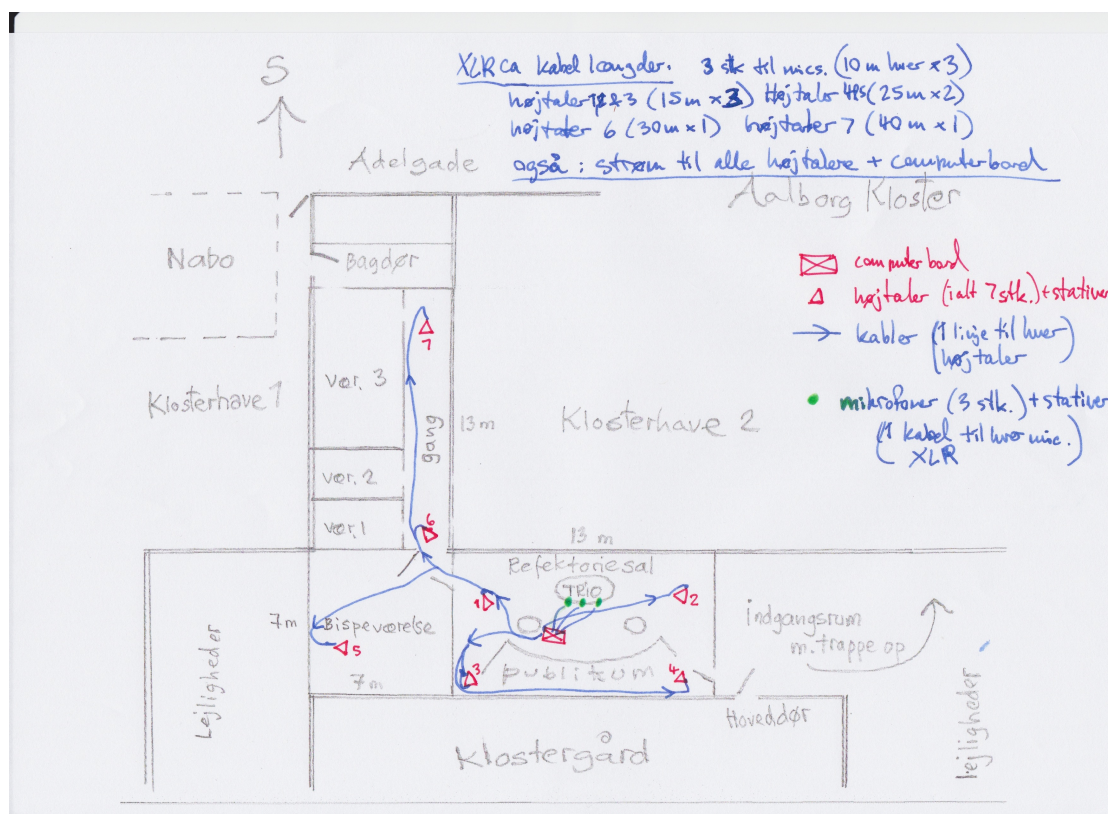 S
XLR ca kabel længder. 3 stk til mics. (10 m hver x 3)
højtaler 1, 2 & 3 (15 m x 3) Højtaler 4 & 5 (25 m x 2)
højtaler 6 (30 m x 1) højtaler 7 (40 m x 1)
også : strøm til alle højtalere + computerbord
Adelgade
Aalborg Kloster
Nabo
Bagdør
computerbord
højtaler (ialt 7 stk.) + stativer
kabler (1 linje til hver
højtaler)
mikrofoner (3 stk.) + stativer
(1 kabel til hver mic.
XLR)
7
Klosterhave 1
Vær. 3
gang
13 m
Klosterhave 2
vær. 2
vær. 1
6
13 m
Refektoriesal
TRIO
1
2
7 m
Bispeværelse
5
3
publikum
4
7 m
indgangsrum
m. trappe op
Lejligheder
Hoveddør
Lejligheder
Klostergård